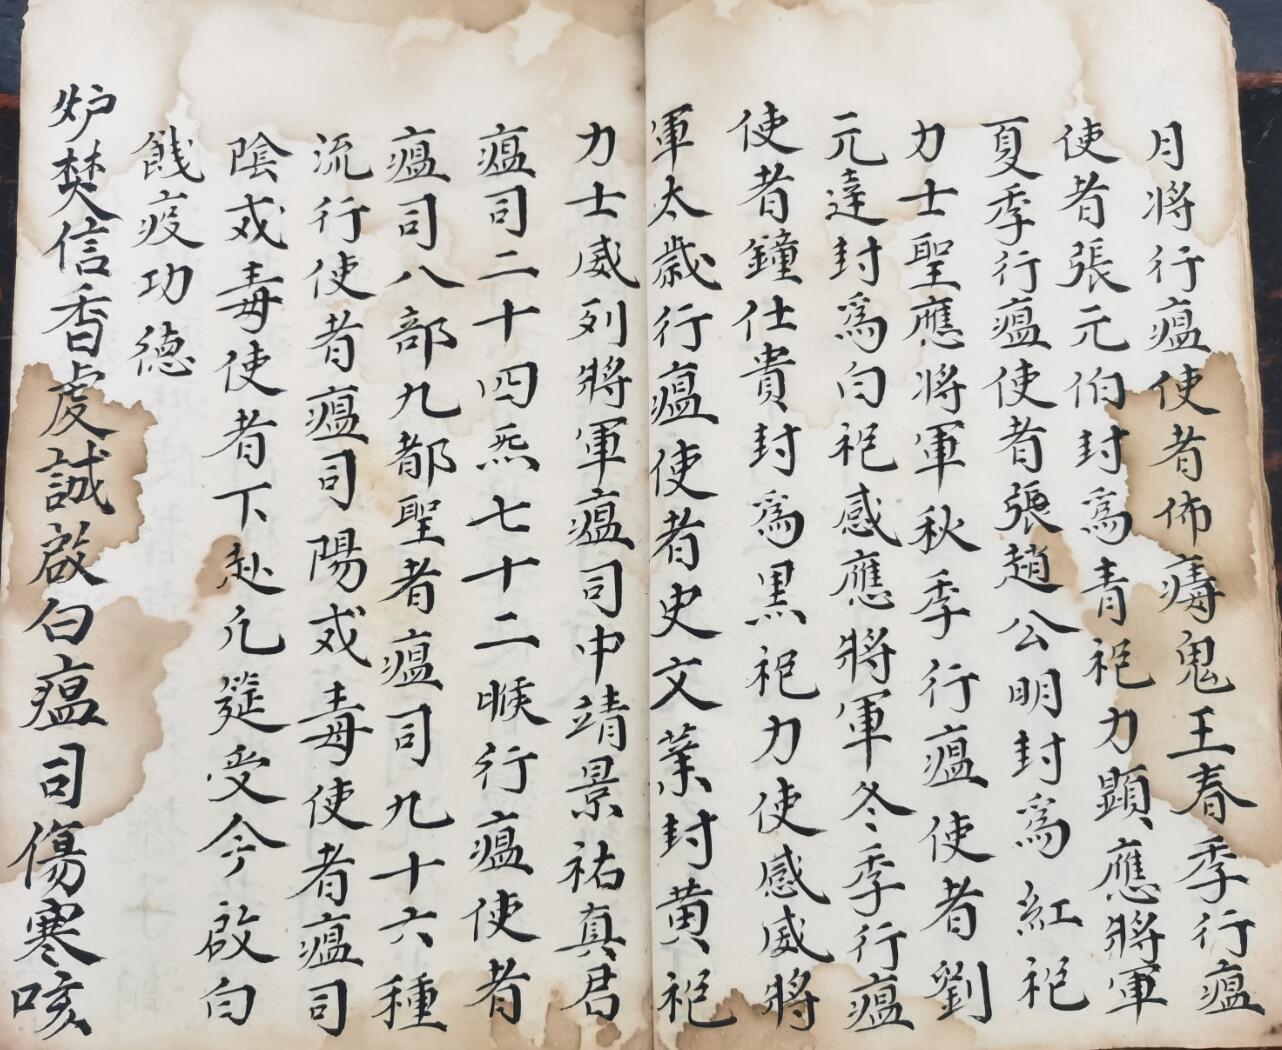 月將行瘟使者佈痗鬼王春季行瘟
使者張元伯封為青袍力顯應將軍
夏季行瘟使者張趙公明封為紅袍
力士聖應將軍秋季行瘟使者劉
元達封為白袍感應將軍冬季行瘟
使者鐘仕貴封為黑袍力使感威將
軍太歲行瘟使者史文業封黃袍
力士威列將軍瘟司中靖景祐真君
瘟司二十四炁七十二候行瘟使者
瘟司八部九都聖者瘟司九十六種
流行使者瘟司陽戎毒使者瘟司
陰戎毒使者下赴凢筵受今啟白
餞疫功德
炉焚信香虔誠啟白瘟司傷寒咳